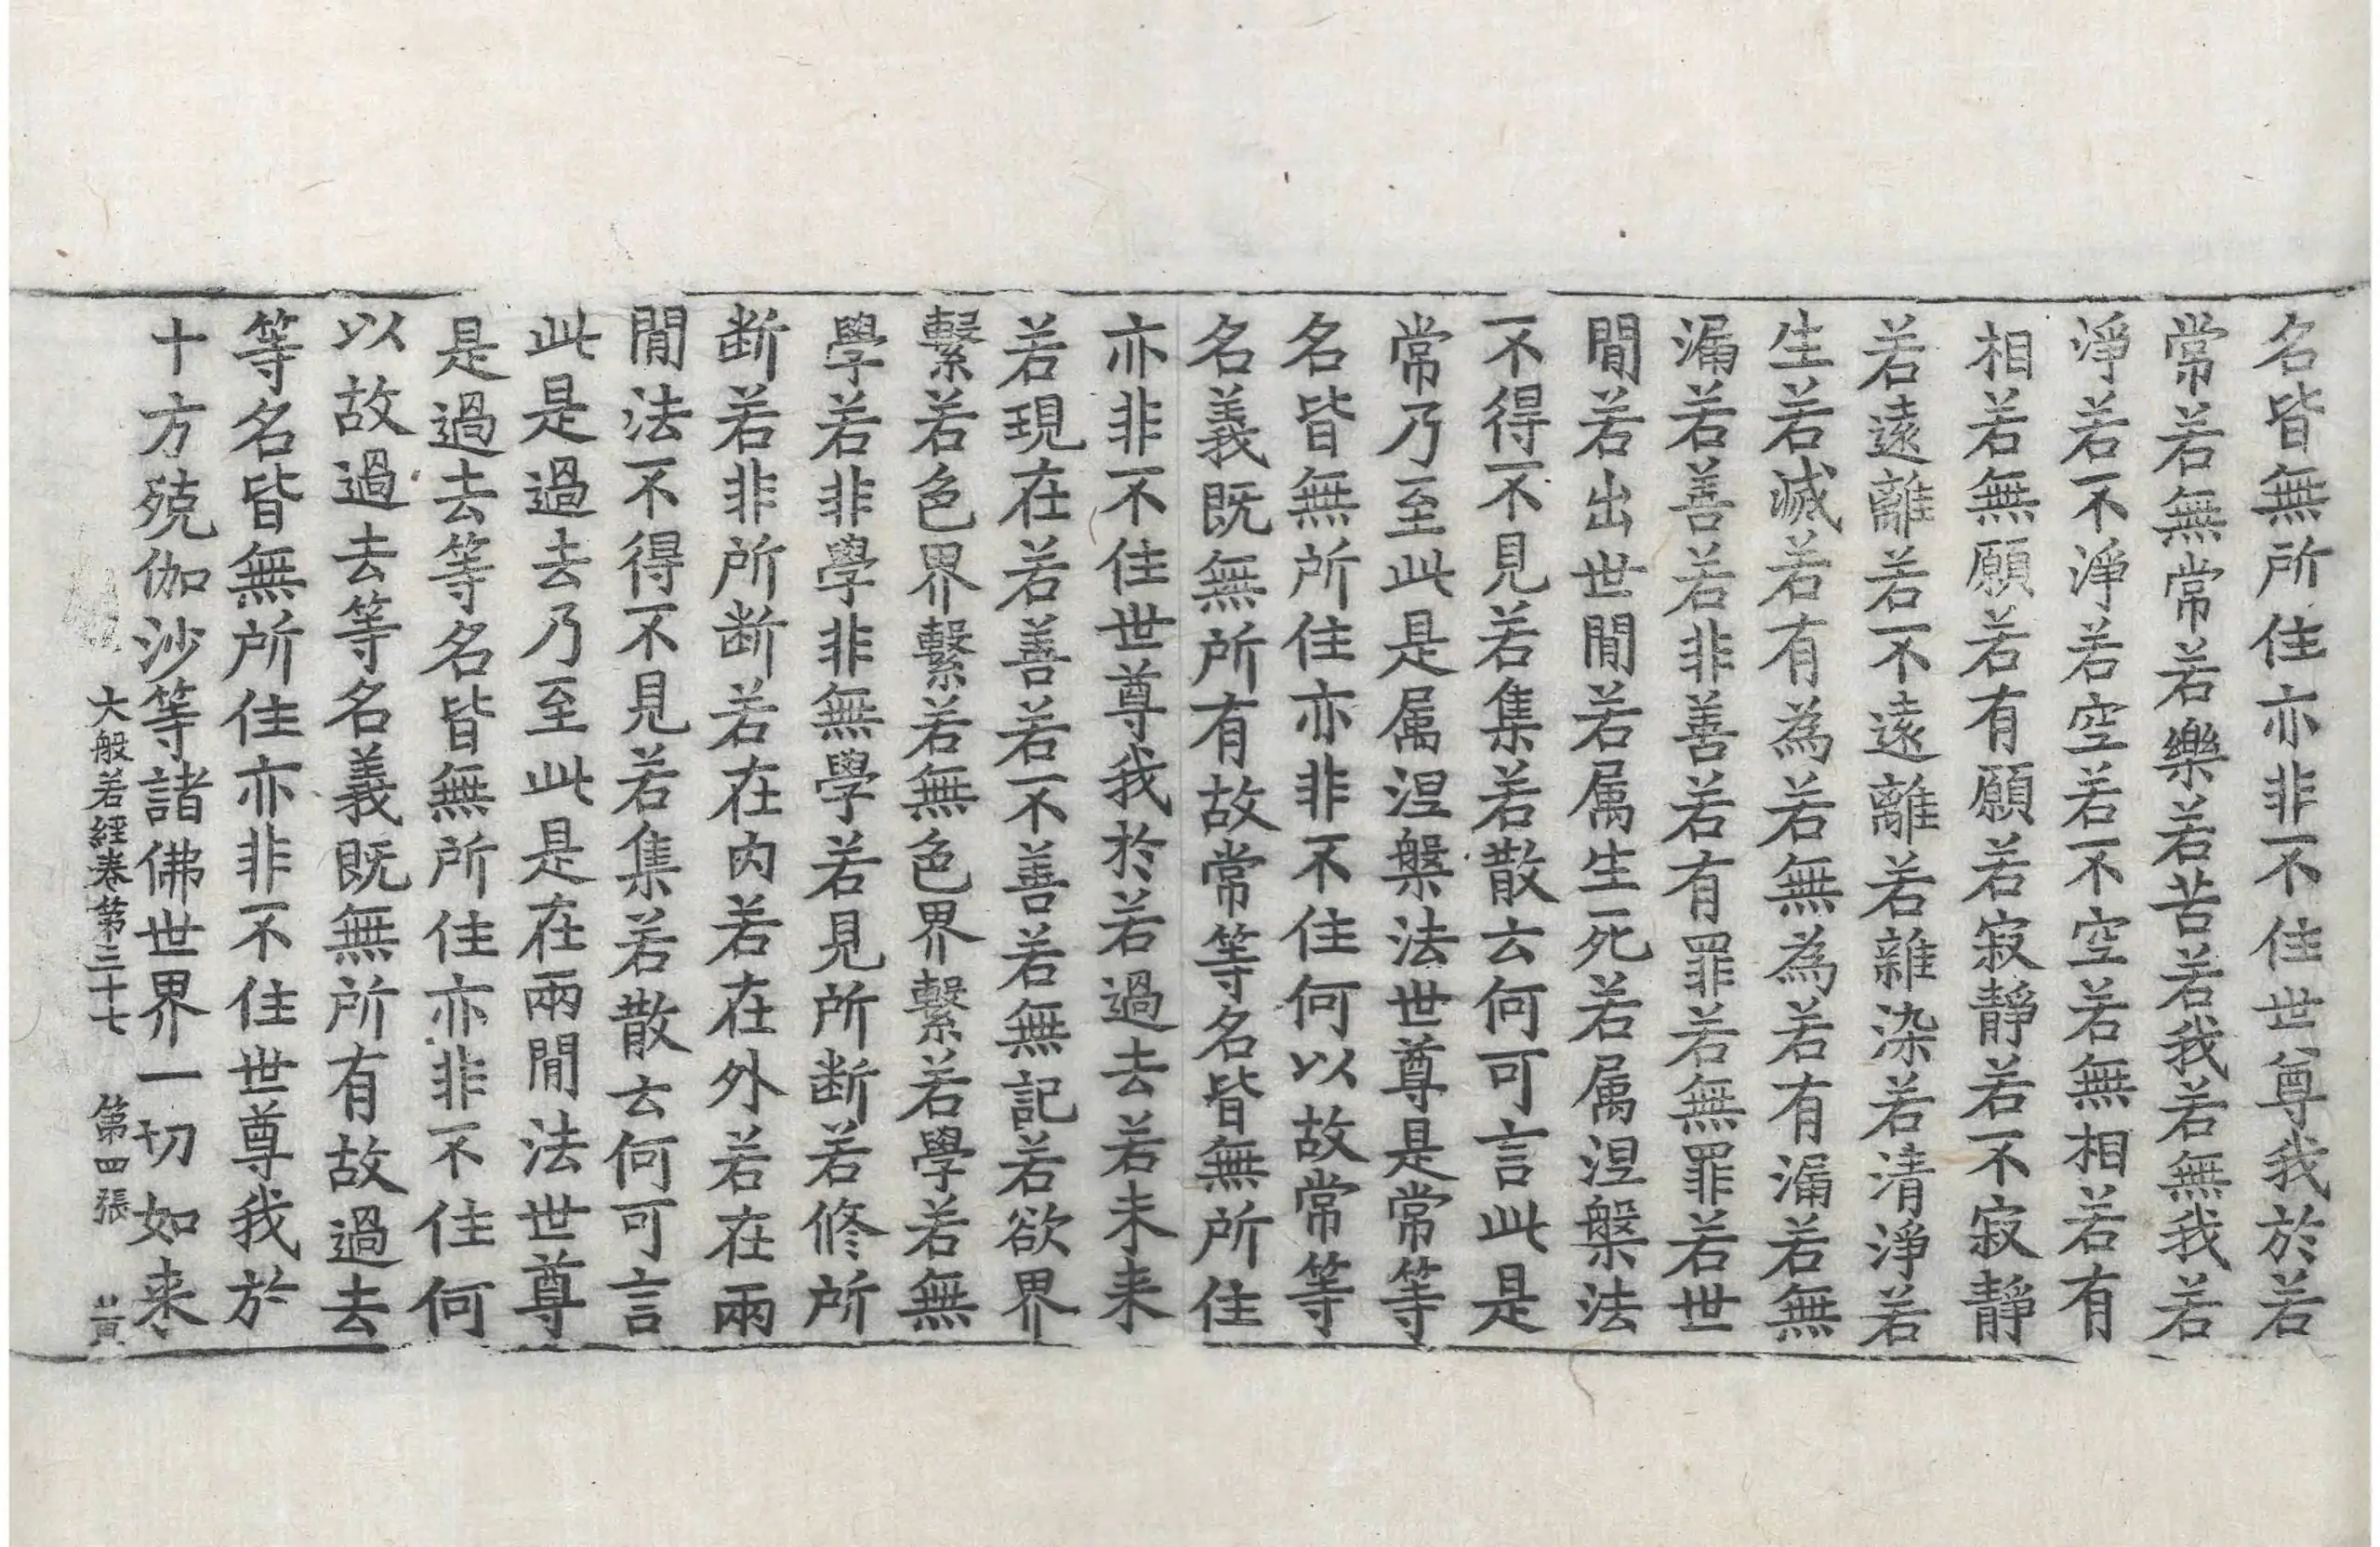 名皆無所住亦非不住世尊我於若
常若無常若樂若苦若我若無我若
淨若不淨若空若不空若無相若有
相若無願若有願若寂靜若不寂靜
若遠離若不遠離若雜染若清淨若
生若滅若有為若無為若有漏若無
漏若善若非善若有罪若無罪若世
閒若出世閒若属生死若属涅槃法
不得不見若集若散云何可言此是
常乃至此是属涅槃法世尊是常等
名皆無所住亦非不住何以故常等
名義既無所有故常等名皆無所住
亦非不住世尊我於若過去若未来
若現在若善若不善若無記若欲界
繫若色界繫若無色界繫若學若無
學若非學非無學若見所断若修所
断若非所断若在內若在外若在兩
閒法不得不見若集若散云何可言
此是過去乃至此是在兩閒法世尊
是過去等名皆無所住亦非不住何
以故過去等名義既無所有故過去
等名皆無所住亦非不住世尊我於
十方殑伽沙等諸佛世界一切如来
大般若經卷第三十七 第四張 黃